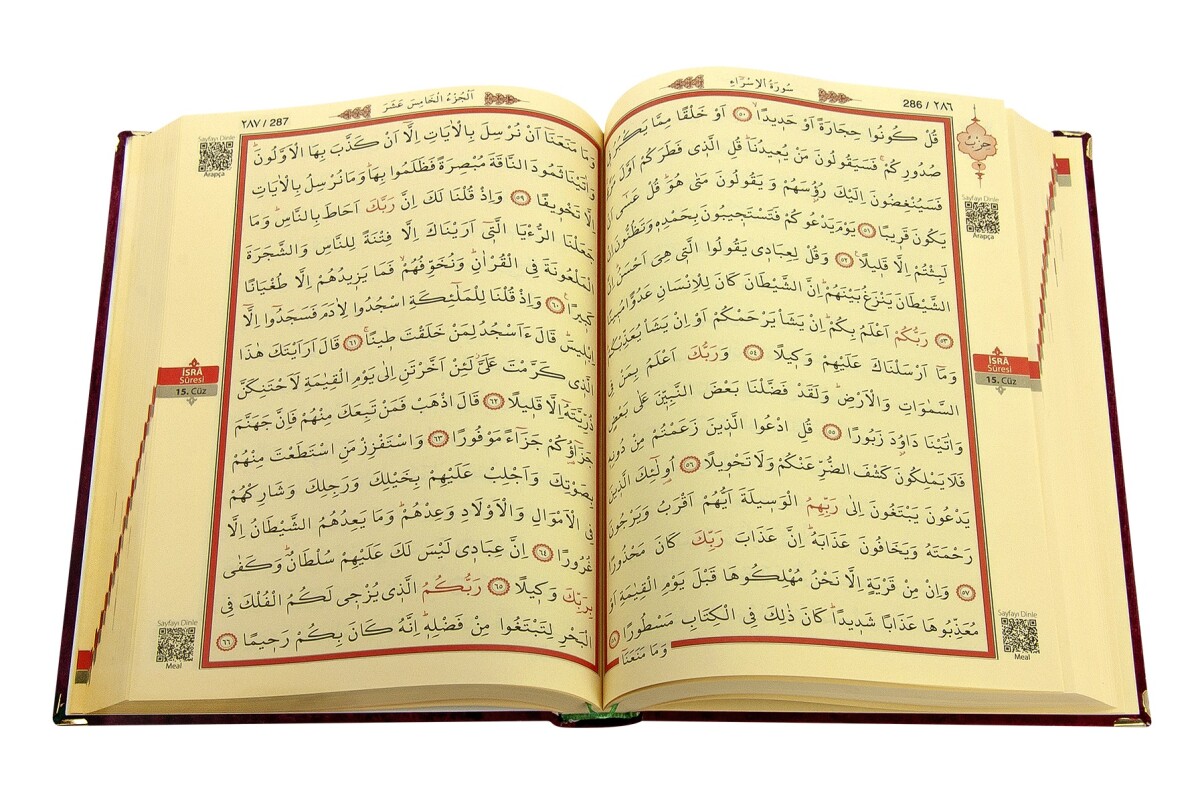 سُورَةُ الْاِسْرَٓاءِ
286 / ٢٨٦
قُلْ كُونُوا حِجَارَةً اَوْ حَد۪يدًاۙ ٥٠ اَوْ خَلْقًا مِمَّا يَكْبُرُ
صُدُورِكُمْۚ فَسَيَقُولُونَ مَنْ يُع۪يدُنَاۜ قُلِ الَّذ۪ي فَطَرَكُمْ اَوَّلَ
فَسَيُنْغِضُونَ اِلَيْكَ رُؤُ۫سَهُمْ وَيَقُولُونَ مَتٰى هُوَۜ قُلْ عَسٰٓى
يَكُونَ قَر۪يبًا ٥١ يَوْمَ يَدْعُوكُمْ فَتَسْتَج۪يبُونَ بِحَمْدِه۪ وَتَظُنُّونَ
لَبِثْتُمْ اِلَّا قَل۪يلًا۟ ٥٢ وَقُلْ لِعِبَاد۪ي يَقُولُوا الَّت۪ي هِيَ اَحْسَنُۜ
الشَّيْطَانَ يَنْزَغُ بَيْنَهُمْۜ اِنَّ الشَّيْطَانَ كَانَ لِلْاِنْسَانِ عَدُوًّا مُب۪ينًا
٥٣ رَبُّكُمْ اَعْلَمُ بِكُمْۜ اِنْ يَشَأْ يَرْحَمْكُمْ اَوْ اِنْ يَشَأْ يُعَذِّبْكُمْۜ
وَمَٓا اَرْسَلْنَاكَ عَلَيْهِمْ وَك۪يلًا ٥٤ وَرَبُّكَ اَعْلَمُ بِمَنْ
السَّمٰوَاتِ وَالْاَرْضِۜ وَلَقَدْ فَضَّلْنَا بَعْضَ النَّبِيّ۪نَ عَلٰى بَعْضٍ
وَاٰتَيْنَا دَاوُ۫دَ زَبُورًا ٥٥ قُلِ ادْعُوا الَّذ۪ينَ زَعَمْتُمْ مِنْ دُونِه۪
فَلَا يَمْلِكُونَ كَشْفَ الضُّرِّ عَنْكُمْ وَلَا تَحْو۪يلًا ٥٦ اُو۬لٰٓئِكَ الَّذ۪ينَ
يَدْعُونَ يَبْتَغُونَ اِلٰى رَبِّهِمُ الْوَس۪يلَةَ اَيُّهُمْ اَقْرَبُ وَيَرْجُونَ
رَحْمَتَهُ وَيَخَافُونَ عَذَابَهُۜ اِنَّ عَذَابَ رَبِّكَ كَانَ مَحْذُورًا
٥٧ وَاِنْ مِنْ قَرْيَةٍ اِلَّا نَحْنُ مُهْلِكُوهَا قَبْلَ يَوْمِ الْقِيٰمَةِ اَوْ
مُعَذِّبُوهَا عَذَابًا شَد۪يدًاۜ كَانَ ذٰلِكَ فِي الْكِتَابِ مَسْطُورًا ٥٨
وَمَا مَنَعَنَٓا
حزب
Sayfayı Dinle
Arapça
İSRÂ
Sûresi
15. Cüz
Sayfayı Dinle
Meal
اَلْجُزْءُ الْخَامِسَ عَشَرَ
٢٨٧ / 287
وَمَا مَنَعَنَٓا اَنْ نُرْسِلَ بِالْاٰيَاتِ اِلَّٓا اَنْ كَذَّبَ بِهَا الْاَوَّلُونَۜ
وَاٰتَيْنَا ثَمُودَ النَّاقَةَ مُبْصِرَةً فَظَلَمُوا بِهَاۜ وَمَا نُرْسِلُ بِالْاٰيَاتِ
اِلَّا تَخْو۪يفًا ٥٩ وَاِذْ قُلْنَا لَكَ اِنَّ رَبَّكَ اَحَاطَ بِالنَّاسِۜ وَمَا
جَعَلْنَا الرُّءْيَا الَّت۪ٓي اَرَيْنَاكَ اِلَّا فِتْنَةً لِلنَّاسِ وَالشَّجَرَةَ
الْمَلْعُونَةَ فِي الْقُرْاٰنِۜ وَنُخَوِّفُهُمْۙ فَمَا يَز۪يدُهُمْ اِلَّا طُغْيَانًا
كَب۪يرًا۟ ٦٠ وَاِذْ قُلْنَا لِلْمَلٰٓئِكَةِ اسْجُدُوا لِاٰدَمَ فَسَجَدُٓوا اِلَّٓا
اِبْل۪يسَۜ قَالَ ءَاَسْجُدُ لِمَنْ خَلَقْتَ ط۪ينًاۚ ٦١ قَالَ اَرَاَيْتَكَ هٰذَا
الَّذ۪ي كَرَّمْتَ عَلَيَّۘ لَئِنْ اَخَّرْتَنِ اِلٰى يَوْمِ الْقِيٰمَةِ لَاَحْتَنِكَنَّ
ذُرِّيَّتَهُٓ اِلَّا قَل۪يلًا ٦٢ قَالَ اذْهَبْ فَمَنْ تَبِعَكَ مِنْهُمْ فَاِنَّ جَهَنَّمَ
جَزَٓاؤُ۬كُمْ جَزَٓاءً مَوْفُورًا ٦٣ وَاسْتَفْزِزْ مَنِ اسْتَطَعْتَ مِنْهُمْ
بِصَوْتِكَ وَاَجْلِبْ عَلَيْهِمْ بِخَيْلِكَ وَرَجِلِكَ وَشَارِكْهُمْ
فِي الْاَمْوَالِ وَالْاَوْلَادِ وَعِدْهُمْۜ وَمَا يَعِدُهُمُ الشَّيْطَانُ اِلَّا
غُرُورًا ٦٤ اِنَّ عِبَاد۪ي لَيْسَ لَكَ عَلَيْهِمْ سُلْطَانٌۜ وَكَفٰى
بِرَبِّكَ وَك۪يلًا ٦٥ رَبُّكُمُ الَّذ۪ي يُزْج۪ي لَكُمُ الْفُلْكَ فِي
الْبَحْرِ لِتَبْتَغُوا مِنْ فَضْلِه۪ۜ اِنَّهُ كَانَ بِكُمْ رَح۪يمًا ٦٦
Sayfayı Dinle
Arapça
İSRÂ
Sûresi
15. Cüz
Sayfayı Dinle
Meal